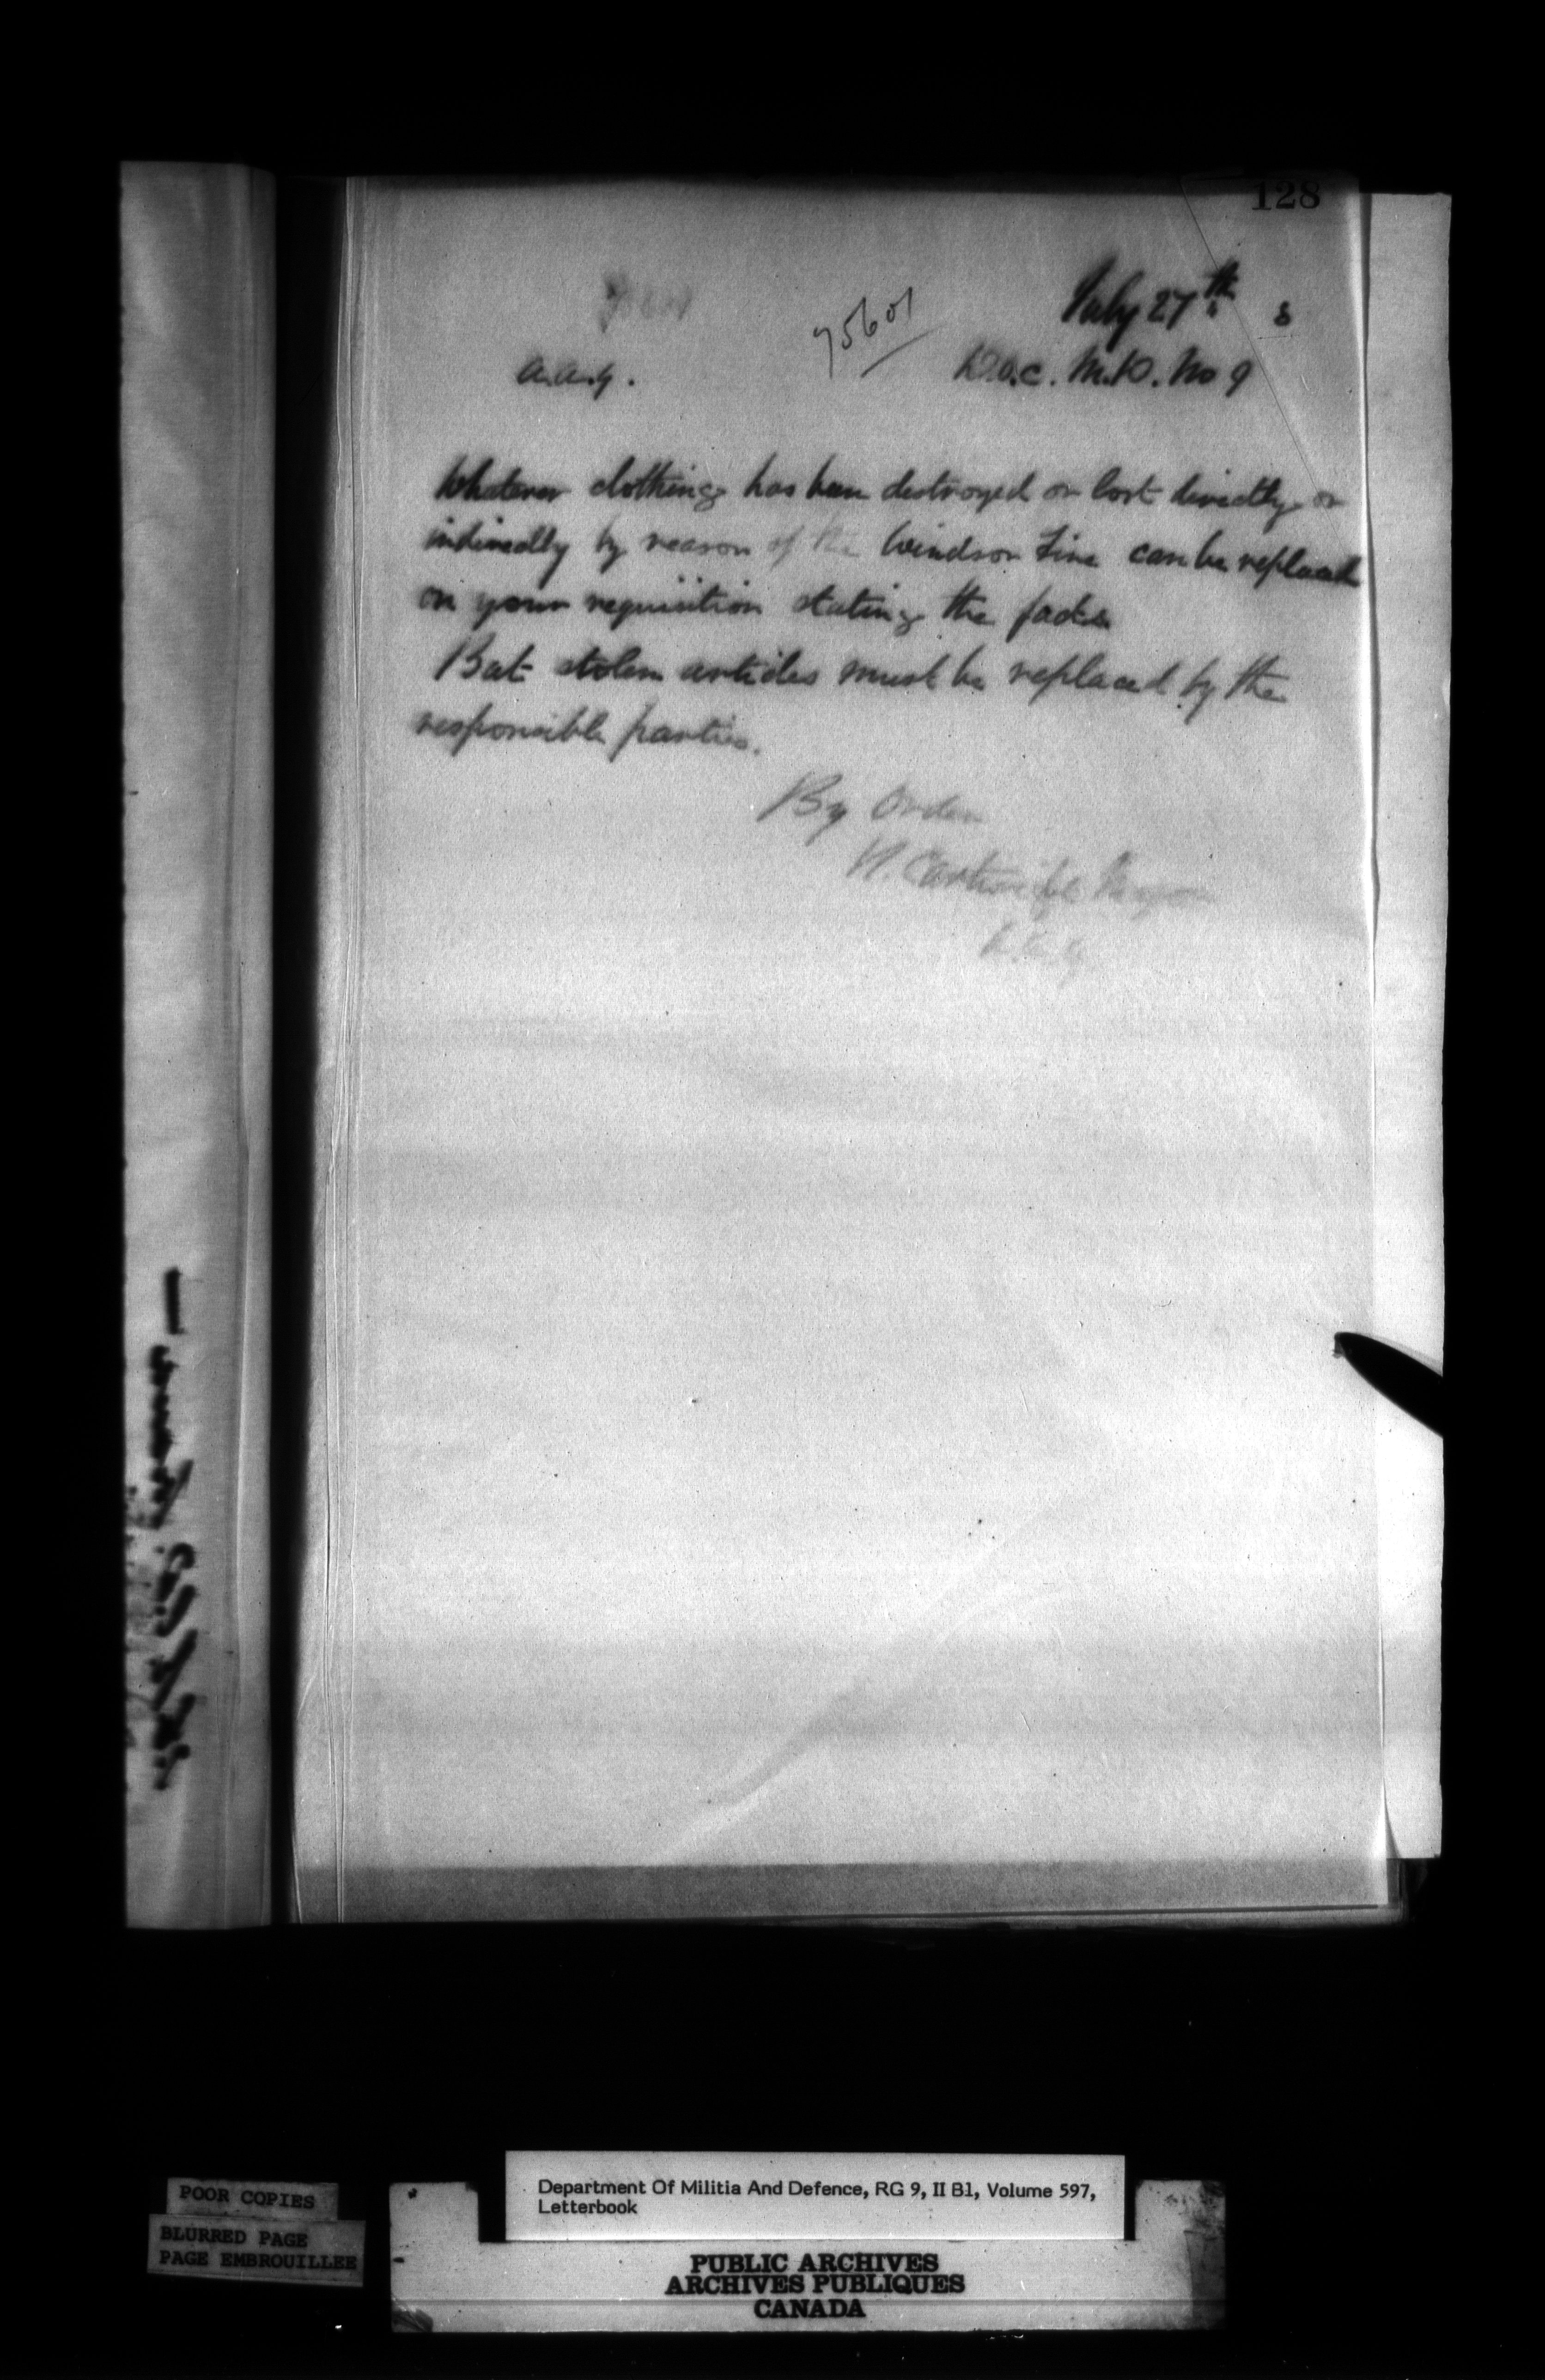 128
July 27th 8
75601
A.A.G. D.O.C. M.D. No 9
Whatever clothing has been destroyed or lost directly or
indirectly by reason of the Windsor Fire can be replaced
on your requisition stating the facts.
But stolen articles must be replaced by the
responsible parties.
By Order
Cartwright Major
POOR COPIES
BLURRED PAGE
PAGE EMBROUILLEE
Department Of Militia And Defence, RG 9, II B1, Volume 597,
Letterbook
PUBLIC ARCHIVES
ARCHIVES PUBLIQUES
CANADA